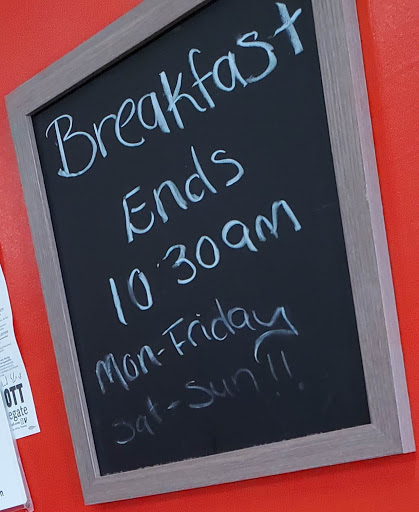 Breakfast
Ends
10:30am
Mon-Friday
Sat-Sun!!
OTT
egate